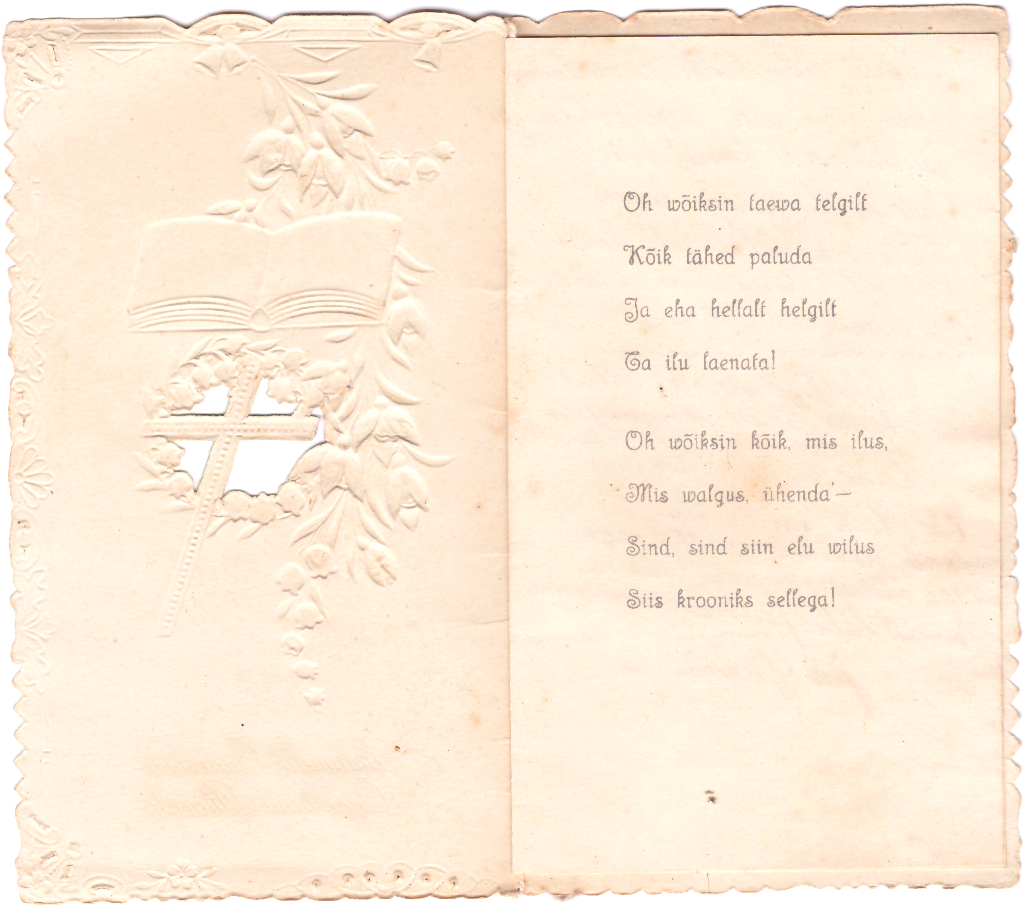 Oh wõiksin taewa telgilt
Kõik tähed paluda
Ja eha hellalt helgilt
Ta ilu laenata!
Oh wõiksin kõik, mis ilus,
Mis walgus, ühenda' —
Sind, sind siin elu wilus
Siis krooniks sellega!